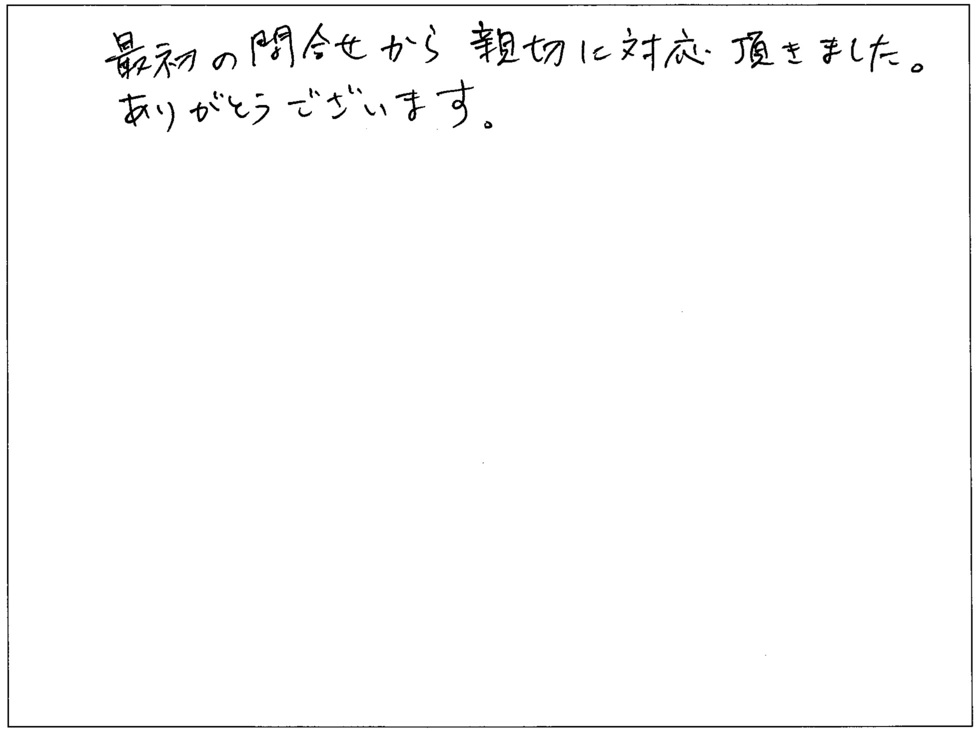 最初の問合せから親切に対応頂きました。
ありがとうございます。